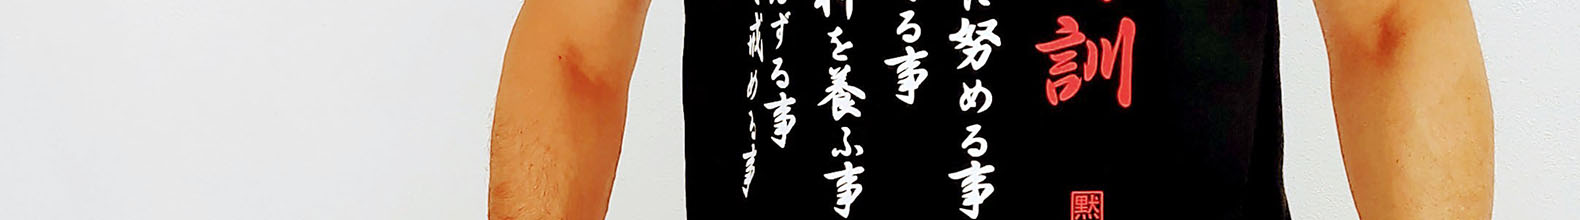 訓
黙
努める事
る事
を養ふ事
ずる事
戒める事